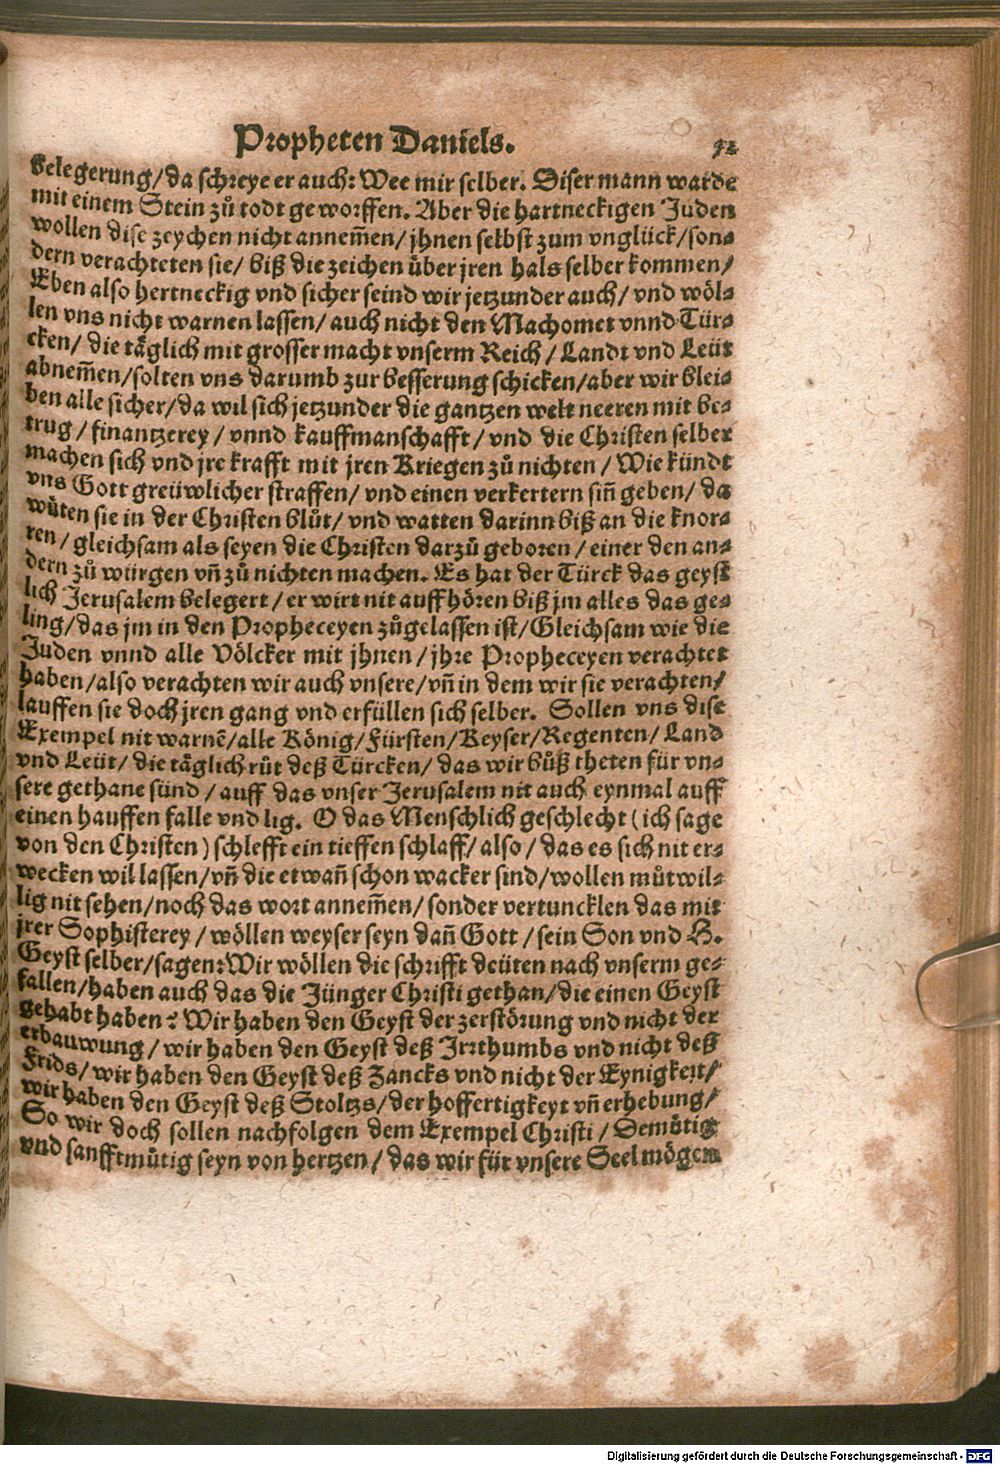 Propheten Daniels. 52
belegerung/da schreye er auch: Wee mir selber. Diser mann warde
mit einem Stein zů todt geworffen. Aber die hartneckigen Juden
wollen dise zeychen nicht annem̃en/jhnen selbst zum vnglück/son⸗
dern verachteten sie/ biß die zeichen über jren hals selber kommen/
Eben also hertneckig vnd sicher seind wir jetzunder auch/ vnd wöl⸗
len vns nicht warnen lassen/ auch nicht den Machomet vnnd Tür⸗
cken/ die täglich mit grosser macht vnserm Reich/ Landt vnd Leüt
abnem̃en/solten vns darumb zur besserung schicken/aber wir blei⸗
ben alle sicher/da wil sich jetzunder die gantzen welt neeren mit be⸗
trug/ finantzerey/ vnnd kauffmanschafft/ vnd die Christen selber
machen sich vnd jre krafft mit jren Kriegen zů nichten/ Wie kündt
vns Gott greüwlicher straffen/ vnd einen verkertern siñ geben/ da
wůten sie in der Christen blůt/ vnd watten darinn biß an die knor⸗
ren/ gleichsam als seyen die Christen darzů geboren/ einer den an⸗
dern zů würgen vñ zů nichten machen. Es hat der Türck das geyst
lich Jerusalem belegert/ er wirt nit auffhören biß jm alles das ge⸗
ling/das jm in den Propheceyen zůgelassen ist/Gleichsam wie die
Juden vnnd alle Völcker mit jhnen/jhre Propheceyen verachtet
haben/also verachten wir auch vnsere/vñ in dem wir sie verachten/
lauffen sie doch jren gang vnd erfüllen sich selber. Sollen vns dise
Exempel nit warnẽ/alle König/Fürsten/Keyser/Regenten/ Land
vnd Leüt/ die täglich růt deß Türcken/ das wir bůß theten für vn⸗
sere gethane sünd/ auff das vnser Jerusalem nit auch eynmal auff
einen hauffen falle vnd lig. O das Menschlich geschlecht (ich sage
von den Christen) schlefft ein tieffen schlaff/ also/ das es sich nit er⸗
wecken wil lassen/vñ die etwañ schon wacker sind/wollen můtwil⸗
lig nit sehen/noch das wort annem̃en/ sonder vertuncklen das mit
jrer Sophisterey/ wöllen weyser seyn dañ Gott/ sein Son vnd H.
Geyst selber/sagen: Wir wöllen die schrifft deüten nach vnserm ge⸗
fallen/haben auch das die Jünger Christi gethan/die einen Geyst
gehabt haben? Wir haben den Geyst der zerstörung vnd nicht der
erbauwung/ wir haben den Geyst deß Irrthumbs vnd nicht deß
Frids/ wir haben den Geyst deß Zancks vnd nicht der Eynigkeit/
wir haben den Geyst deß Stoltzs/der hoffertigkeyt vñ erhebung/
So wir doch sollen nachfolgen dem Exempel Christi/ Demůtig
vnd sanfftmůtig seyn von hertzen/ das wir für vnsere Seel mögen
Digitalisierung gefördert durch die Deutsche Forschungsgemeinschaft - DFG